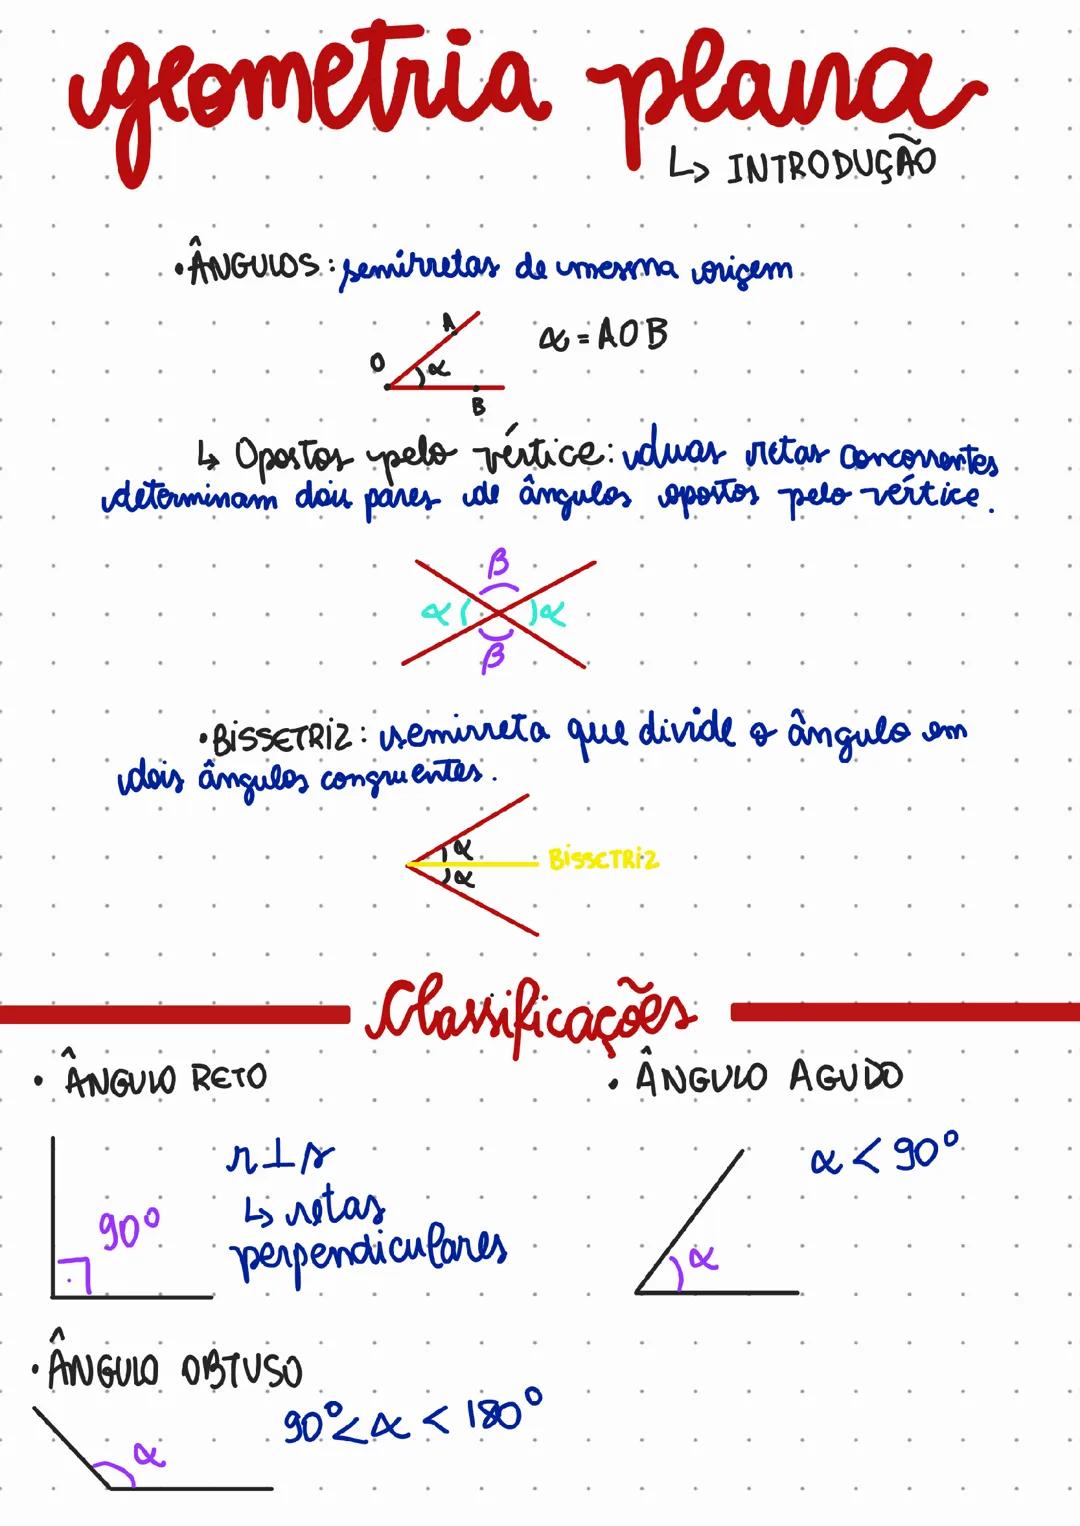 geometria plana
↳ INTRODUÇÃO
• ÂNGULOS: semirretas de mesma origem
A
O
α
B
α = AOB
↳ Opostos pelo vértice: duas retas concorrentes
determinam dois pares de ângulos opostos pelo vértice.
β
α α
β
• BISSETRIZ: semirreta que divide o ângulo em
dois ângulos congruentes.
α
α
BISSETRIZ
Classificações
• ÂNGULO RETO
90°
r ⊥ s
↳ retas
perpendiculares
• ÂNGULO AGUDO
α < 90°
α
• ÂNGULO OBTUSO
90° < α < 180°
α